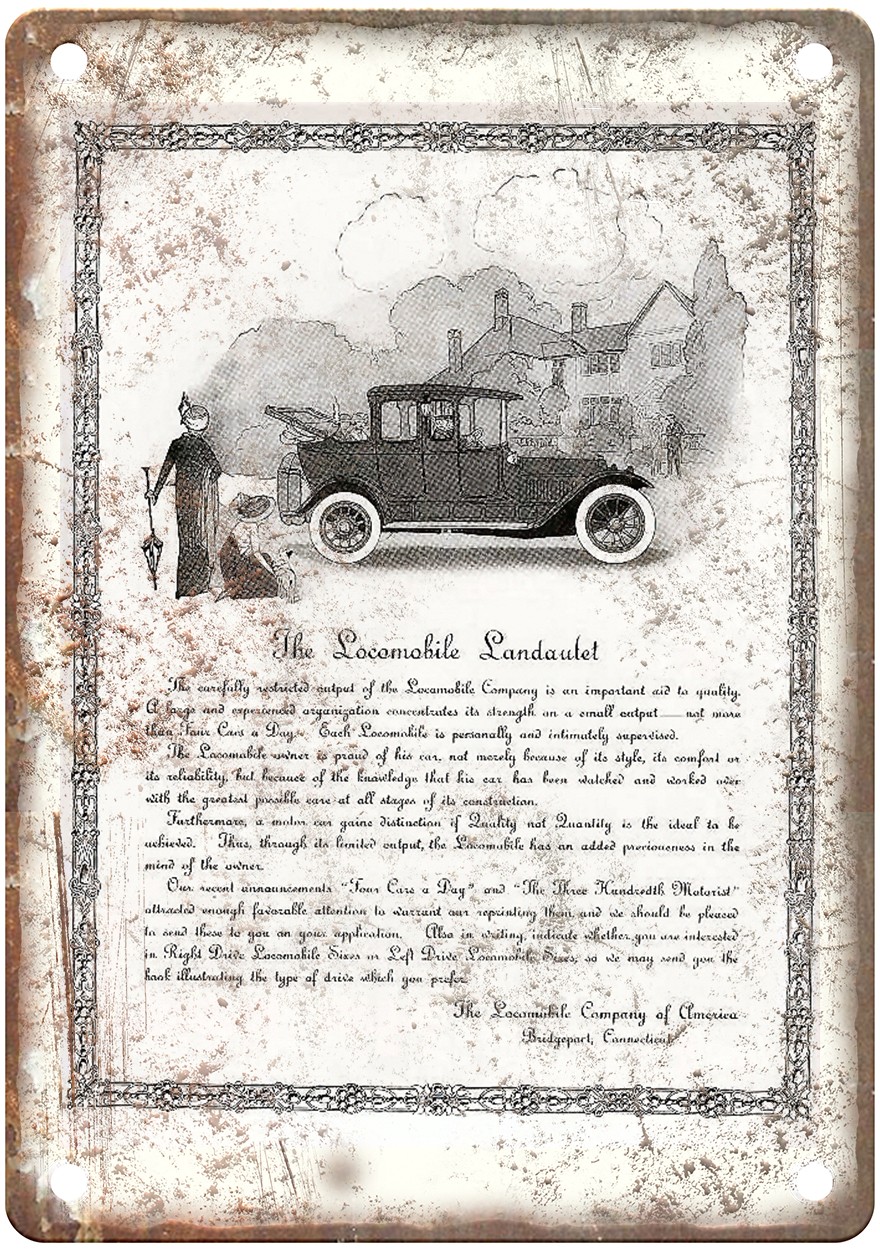 The Locomobile Landaulet
The carefully restricted output of the Locomobile Company is an important aid to quality.
A large and experienced organization concentrates its strength on a small output — not more
than Four Cars a Day. Each Locomobile is personally and intimately supervised.
The Locomobile owner is proud of his car, not merely because of its style, its comfort or
its reliability, but because of the knowledge that his car has been watched and worked over
with the greatest possible care at all stages of its construction.
Furthermore, a motor car gains distinction if Quality not Quantity is the ideal to be
achieved. Thus, through its limited output, the Locomobile has an added preciousness in the
mind of the owner.
Our recent announcements "Four Cars a Day" and "The Three Hundredth Motorist"
attracted enough favorable attention to warrant our reprinting them and we should be pleased
to send these to you on your application. Also in writing, indicate whether you are interested
in Right Drive Locomobile Sixes or Left Drive Locomobile Sixes, so we may send you the
book illustrating the type of drive which you prefer.
The Locomobile Company of America
Bridgeport, Connecticut